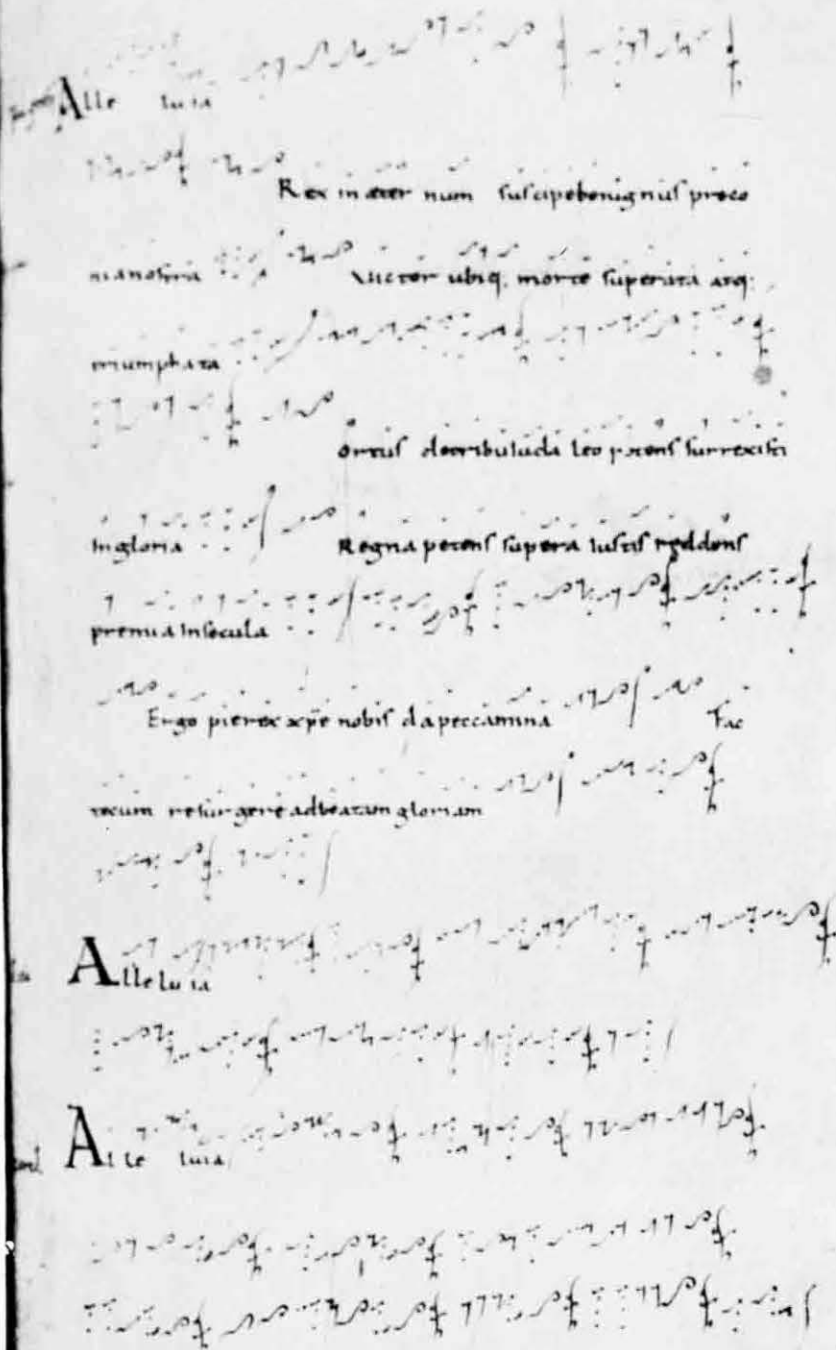 Alle luia
Rex in æter num suscipe benignus preco
nia nostra Victor ubiq; morte superata atq;
triumphata
ortus detribuiuda leo potens surrexisti
In gloria Regna petens supera Iustis reddens
premia Insecula
Ergo pie rex xp̄e nobis da peccamina Fac
tecum resurgere adbeatam gloriam
Alleluia
Alle luia